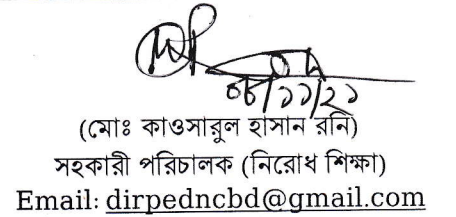 ০৮/১১/২১
(মোঃ কাওসারুল হাসান রনি)
সহকারী পরিচালক (নিরোধ শিক্ষা)
Email: dirpedncbd@gmail.com